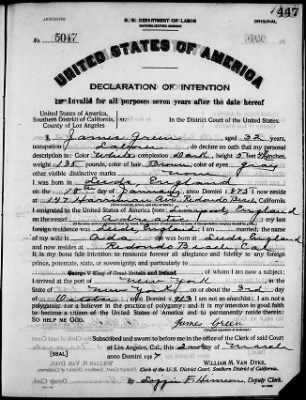 447
U. S. DEPARTMENT OF LABOR
NATURALIZATION SERVICE
ORIGINAL
No. 5047
UNITED STATES OF AMERICA
DECLARATION OF INTENTION
Invalid for all purposes seven years after the date hereof
United States of America,
Southern District of California, ss:
County of Los Angeles
In the District Court of the United States.
I, James Green, aged 32 years,
occupation, do declare on oath that my personal
description is: Color White, complexion Dark, height 5 feet inches,
weight 135 pounds, color of hair Brown, color of eyes gray
other visible distinctive marks none
I was born in Leeds, England
on the 18th day of January, anno Domini 1875; I now reside
at 147 Harriman Av. Redondo Beach, California.
I emigrated to the United States of America from Liverpool, England
on the vessel; my last
foreign residence was Leeds, England; I am married; the name
of my wife is Ada; she was born in Leeds, England
and now resides at Redondo Beach, Cal.
It is my bona fide intention to renounce forever all allegiance and fidelity to any foreign
prince, potentate, state, or sovereignty, and particularly to
George V King of Great Britain and Ireland, of whom I am now a subject;
I arrived at the port of New York, in the
State of New York, on or about the 3rd day
of October, anno Domini 1913; I am not an anarchist; I am not a
polygamist nor a believer in the practice of polygamy; and it is my intention in good faith
to become a citizen of the United States of America and to permanently reside therein:
SO HELP ME GOD.
James Green
Subscribed and sworn to before me in the office of the Clerk of said Court
at Los Angeles, Cal., this day of March
anno Domini 1917
[SEAL]
WILLIAM M. VAN DYKE,
Clerk of the U. S. District Court, Southern District of California.
By, Deputy Clerk.